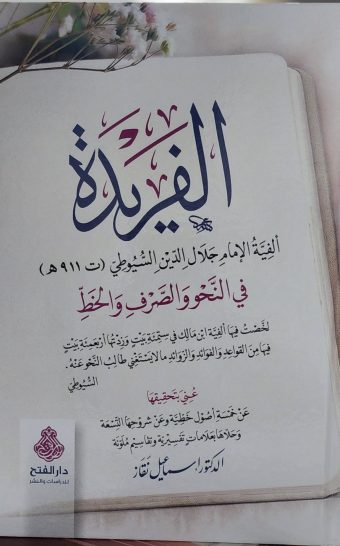 الفَرِيْدَة
ألفيَّةُ الإمامِ جَلَالِ الدِّينِ السُّيُوطِيِّ (ت ٩١١ هـ)
في النَّحْوِ وَالصَّرْفِ وَالخَطِّ
لخَّصْتُ فيهَا ألفيَّةَ ابن مَالِك في سِتِّمئة بَيْتٍ وَزِدْتُها أَرْبَعَمِئَةِ بَيْتٍ
فيهَا مِنَ القَواعِدِ وَالفَوَائِدِ وَالزَّوَائِدِ مَا لَا يَسْتَغْني طَالِبُ النَّحْوِ عَنْهُ.
السُّيُوطِيّ
عُنِيَ بتَحْقِيْقِهَا
عَنْ خَمْسَةِ أُصُوْلٍ خَطِّيَّةٍ وَعَنْ شُرُوحِهَا التِّسْعَة
وَحَلَّاهَا بعَلَامَاتٍ تَفْسِيْرِيَّة وَتَقَاسِيْمَ مُلَوَّنَة
الدكتور إسماعيل نقاز
دار الفتح
للدراسات والنشر